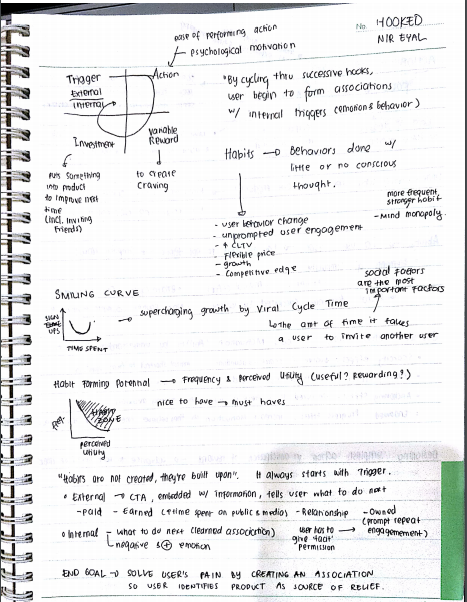 No. HOOKED
NIR EYAL
ease of performing action
psychological motivation
Trigger
External
Internal
Action
Investment
Variable
Reward
puts something
into product
to improve next
time
(incl. inviting
friends)
to create
craving
"By cycling thru successive hooks,
user begin to form associations
w/ internal triggers (emotions & behavior)
Habits → Behaviors done w/
little or no conscious
thought.
more frequent,
stronger habit
- Mind monopoly
- user behavior change
- unprompted user engagement
- ↑ CLTV
- Flexible price
- growth
- Competitive edge
social factors
are the most
important factors
SMILING CURVE
SIGN
UPS
TIME SPENT
→ supercharging growth by Viral Cycle Time
↳ the amt of time it takes
a user to invite another user
Habit Forming Potential → Frequency & Perceived Utility (useful? Rewarding?)
nice to have → must haves
HABIT
ZONE
perceived
utility
"Habits are not created, they're built upon". It always starts with Trigger.
• External → CTA, embedded w/ information, tells user what to do next
- paid - Earned (+time spent on public & media) - Relationship - Owned
(prompt repeat
engagemement)
• Internal - what to do next (learned association)
- negative & ⊕ emotion
user has to
give that
permission
END GOAL → SOLVE USER'S PAIN BY CREATING AN ASSOCIATION
SO USER IDENTIFIES PRODUCT AS SOURCE OF RELIEF.